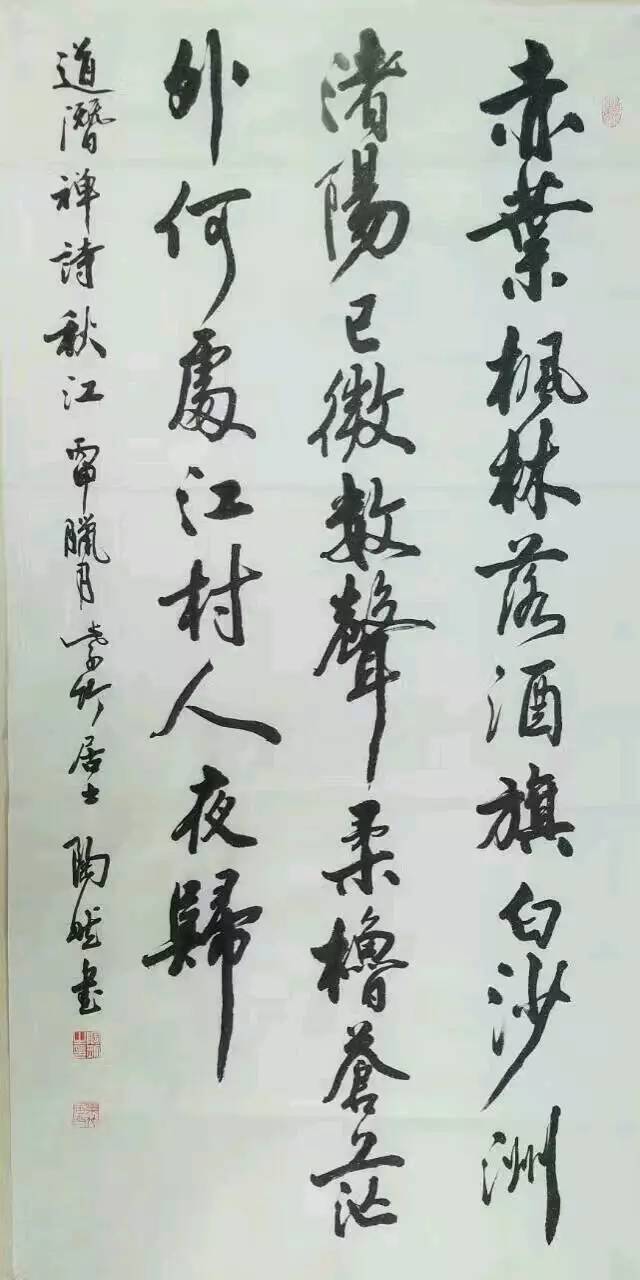 赤葉楓林落酒旗白沙洲
渚陽已微数聲柔櫓蒼茫
外何處江村人夜歸
道潛禅詩秋江 丙申臘月 紫竹居士 陶然書